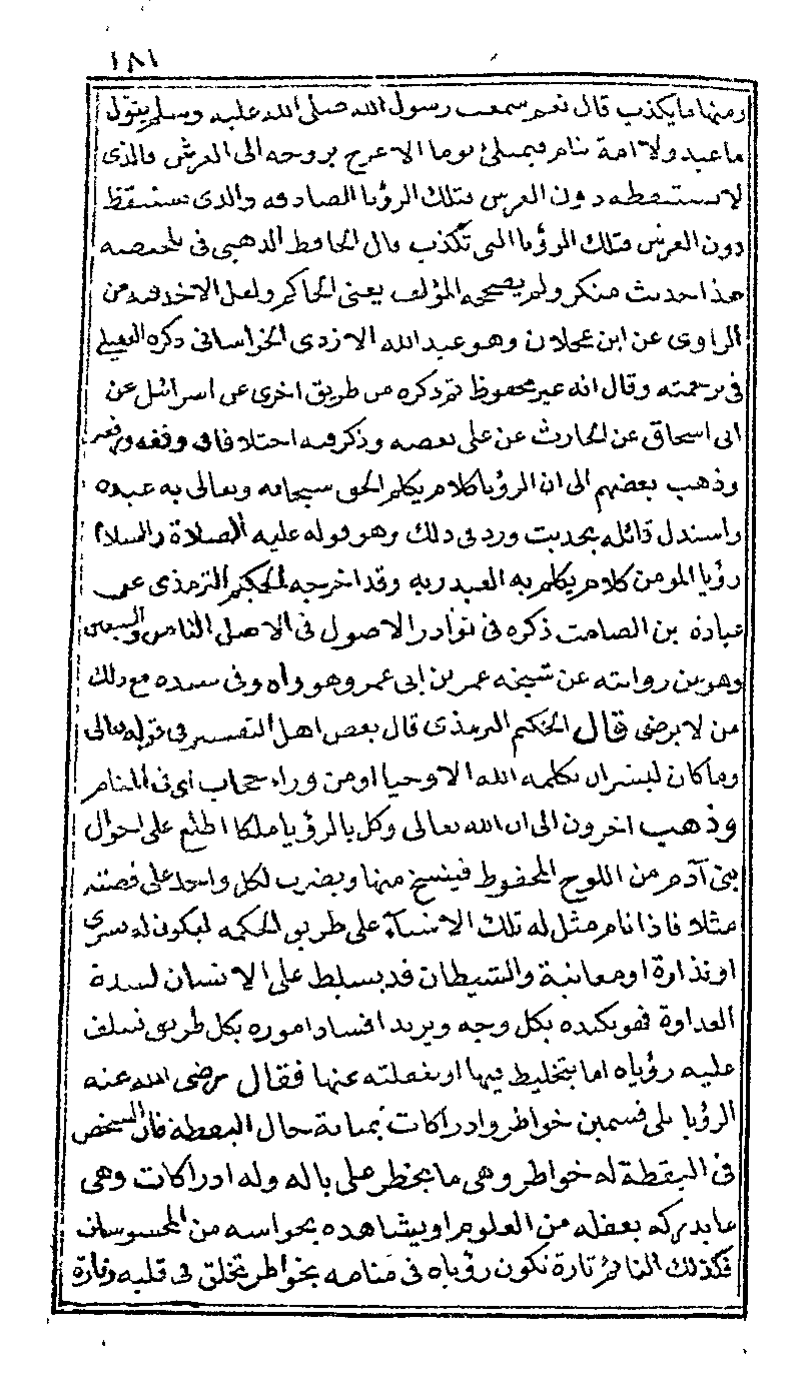 ١٨١
ومنها ما يكذب قال نعم سمعت رسول الله صلى الله عليه وسلم يقول
ما عبد ولا امة ينام فيمتلئ نوما الا عرج بروحه الى العرش فالذى
لا يستيقظ دون العرش فتلك الرؤيا الصادقه والذى يستيقظ
دون العرش فتلك الرؤيا التى تكذب قال الحافظ الذهبى فى تلخيصه
هذا حديث منكر ولم يصححه المؤلف يعنى الحاكم ولعل الاخذ فيه من
الراوى عن ابن عجلان وهو عبد الله الازدى الخراسانى ذكره العقيلى
فى ترجمته وقال انه غير محفوظ ثم ذكره من طريق اخرى عن اسرائيل عن
ابى اسحاق عن الحارث عن على ببعضه وذكر فيه اختلافا فى وقفه ورفعه
وذهب بعضهم الى ان الرؤيا كلام يكلم الحق سبحانه وتعالى به عبده
واستدل قائله بحديث ورد فى ذلك وهو قوله عليه الصلاة والسلام
رؤيا المومن كلام يكلم به العبد ربه وقد اخرجه الحكيم الترمذى عن
عبادة بن الصامت ذكره فى نوادر الاصول فى الاصل الثامن والسبعين
وهو من روايته عن شيخه عمر بن ابى عمر وهو واه وفى سنده مع ذلك
من لا يرضى قال الحكيم الترمذى قال بعض اهل التفسير فى قوله تعالى
وما كان لبشر ان يكلمه الله الا وحيا او من وراء حجاب اى فى المنام
وذهب اخرون الى ان الله تعالى وكل بالرؤيا ملكا اطلع على احوال
بنى آدم من اللوح المحفوظ فينسخ منها ويضرب لكل واحد على قصته
مثلا فاذا نام مثل له تلك الاشيآء على طريق الحكمه ليكون له بشرى
او نذارة او معاتبة والشيطان قد يسلط على الانسان لشدة
العداوة فهو يكيده بكل وجه ويريد افساد اموره بكل طريق فيلبس
عليه رؤياه اما بتخليط فيها او بغفلته عنها فقال رضى الله عنه
الرؤيا على قسمين خواطر وادراكات بمثابة حال اليقظة فان الشخص
فى اليقظة له خواطر وهى ما يخطر على باله وله ادراكات وهى
ما يدركه بعقله من العلوم او يشاهده بحواسه من المحسوسات
فكذلك النائم تارة تكون رؤياه فى منامه بخواطر تخلق فى قلبه وتارة